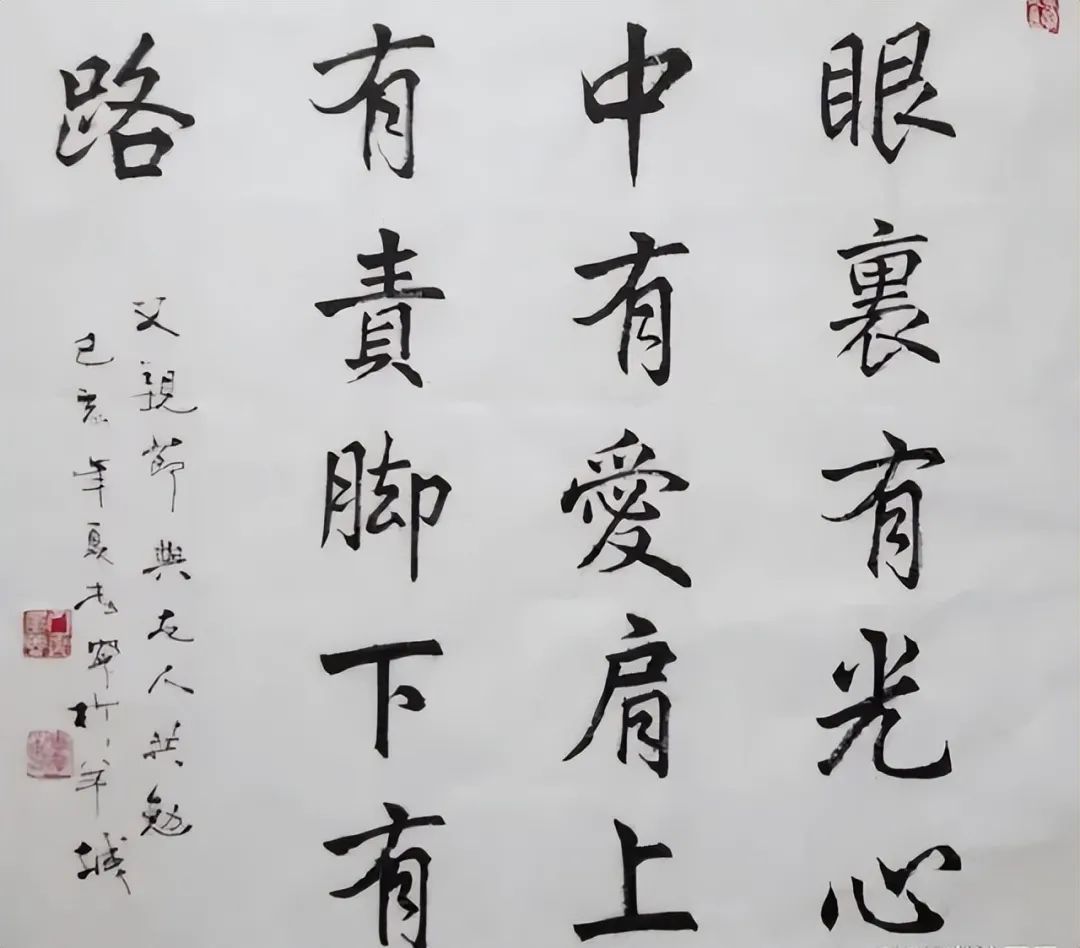 眼裏有光心
中有愛肩上
有責脚下有
路
父親節與友人共勉
己亥年夏志寧於羊城